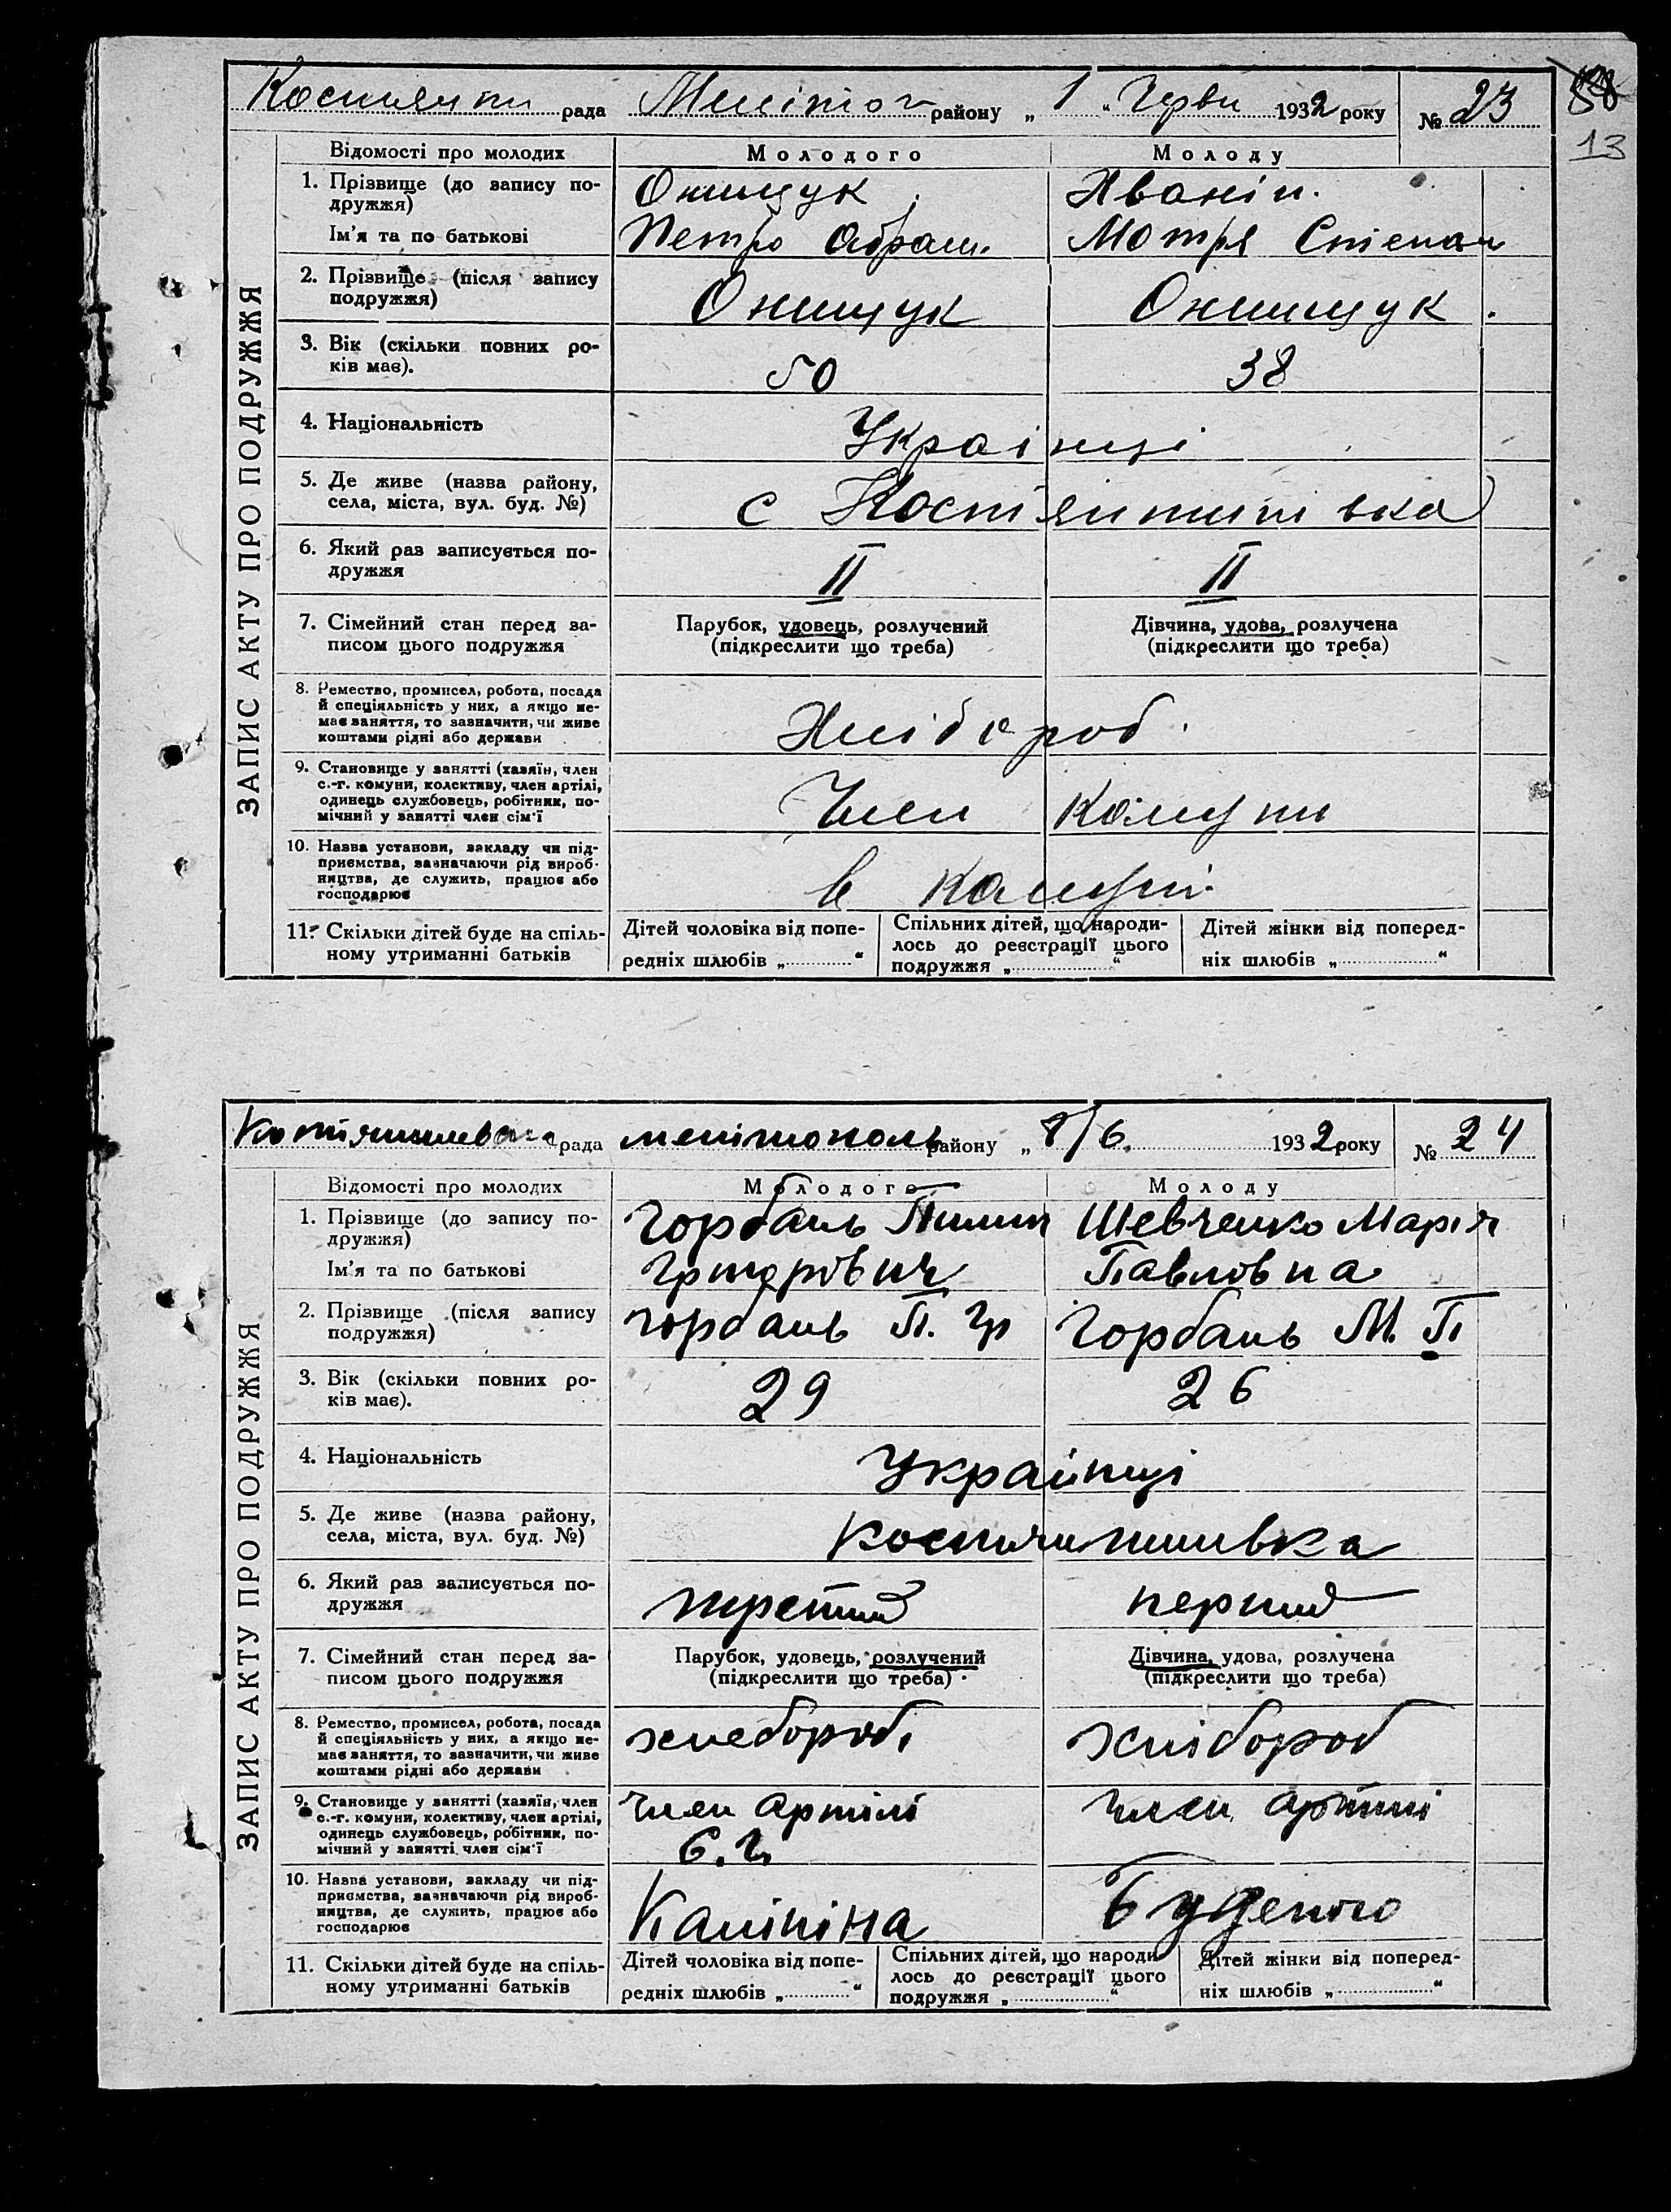 Костянти рада Меліто району „ 1 „ Черви 1932 року № 23
13
Відомості про молодих Молодого Молоду
1. Прізвище (до запису по-
дружжя) Онищук Іванін.
Ім'я та по батькові Петро Абрам. Мотря Степан
2. Прізвище (після запису
подружжя) Онищук Онищук.
3. Вік (скільки повних ро-
ків має). 50 38
4. Національність Украінці
5. Де живе (назва району,
села, міста, вул. буд. №) с Костянтинівка
6. Який раз записується по-
дружжя II II
7. Сімейний стан перед за-
писом цього подружжя
Парубок, удовець, розлучений
(підкреслити що треба)
Дівчина, удова, розлучена
(підкреслити що треба)
8. Ремество, промисел, робота, посада
й спеціяльність у них, а якщо не-
має заняття, то зазначити, чи живе
коштами рідні або держави
Хлібороб.
9. Становище у занятті (хазяїн, член
с.-г. комуни, колективу, член артілі,
одинець службовець, робітник, по-
мічний у занятті член сім'ї
Член комуни
10. Назва установи, закладу чи під-
приємства, зазначаючи рід вироб-
ництва, де служить, працює або
господарює
в комуні
11. Скільки дітей буде на спіль-
ному утриманні батьків
Дітей чоловіка від попе-
редніх шлюбів „ “
Спільних дітей, що народи-
лось до реєстрації цього
подружжя „ “
Дітей жінки від поперед-
ніх шлюбів „ “
ЗАПИС АКТУ ПРО ПОДРУЖЖЯ
рада мелітополь району „ 8/6. 1932 року № 24
Відомості про молодих Молодого Молоду
1. Прізвище (до запису по-
дружжя) Горбань Пилип Шевченко Марія
Ім'я та по батькові Григорівич Павловна
2. Прізвище (після запису
подружжя) Горбань П. Гр Горбань М. П
3. Вік (скільки повних ро-
ків має). 29 26
4. Національність Украінці
5. Де живе (назва району,
села, міста, вул. буд. №) Костянтинивка
6. Який раз записується по-
дружжя третий перший
7. Сімейний стан перед за-
писом цього подружжя
Парубок, удовець, розлучений
(підкреслити що треба)
Дівчина, удова, розлучена
(підкреслити що треба)
8. Ремество, промисел, робота, посада
й спеціяльність у них, а якщо не-
має заняття, то зазначити, чи живе
коштами рідні або держави
хлебороб, хлібороб
9. Становище у занятті (хазяїн, член
с.-г. комуни, колективу, член артілі,
одинець службовець, робітник, по-
мічний у занятті член сім'ї
член артілі член артілі
С.Г.
10. Назва установи, закладу чи під-
приємства, зазначаючи рід вироб-
ництва, де служить, працює або
господарює
Калініна Будено́го
11. Скільки дітей буде на спіль-
ному утриманні батьків
Дітей чоловіка від попе-
редніх шлюбів „ “
Спільних дітей, що народи-
лось до реєстрації цього
подружжя „ “
Дітей жінки від поперед-
ніх шлюбів „ “
ЗАПИС АКТУ ПРО ПОДРУЖЖЯ